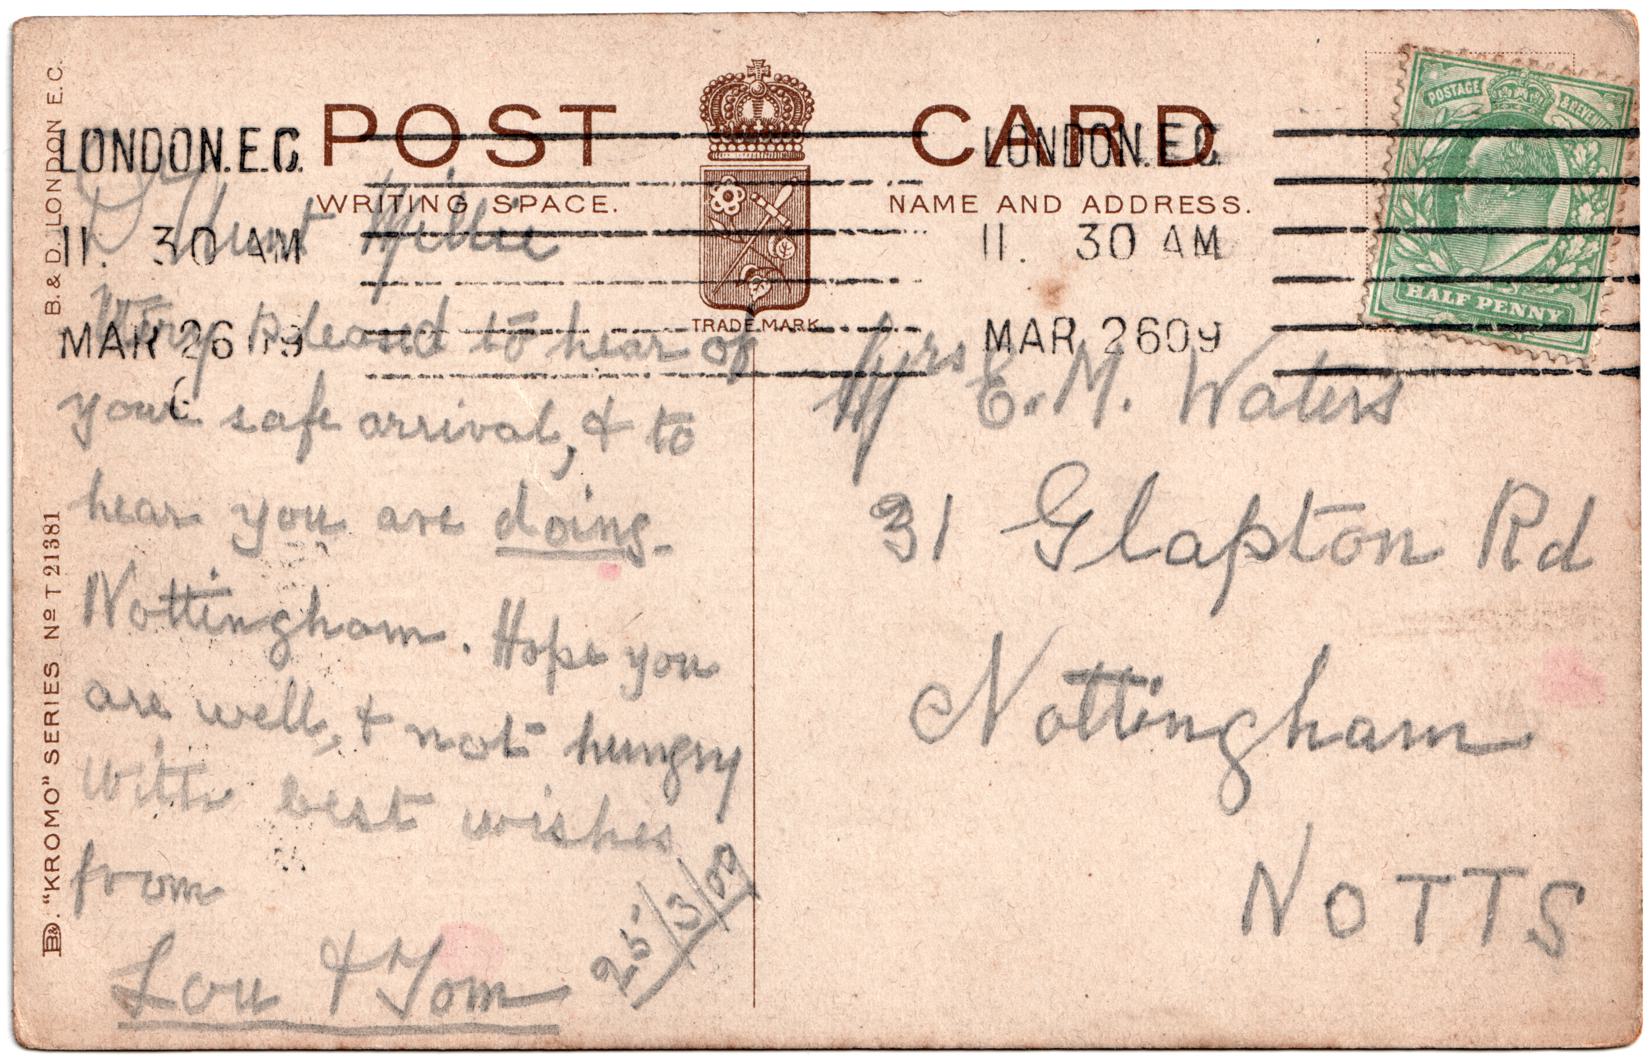 POST CARD
WRITING SPACE.
NAME AND ADDRESS.
TRADE MARK
B. & D. LONDON E.C.
B&D. "KROMO" SERIES Nº T 21381
LONDON.E.C.
11. 30 AM
MAR 26 09
6
LONDON.E.C.
11. 30 AM
MAR 26 09
POSTAGE & REVENUE
HALF PENNY
D Aunt Millie
Very pleased to hear of
your safe arrival, & to
hear you are doing
Nottingham. Hope you
are well, & not hungry
With best wishes
from
Lou & Tom
25/3/09
Mrs E. M. Waters
31 Glapton Rd
Nottingham
NOTTS